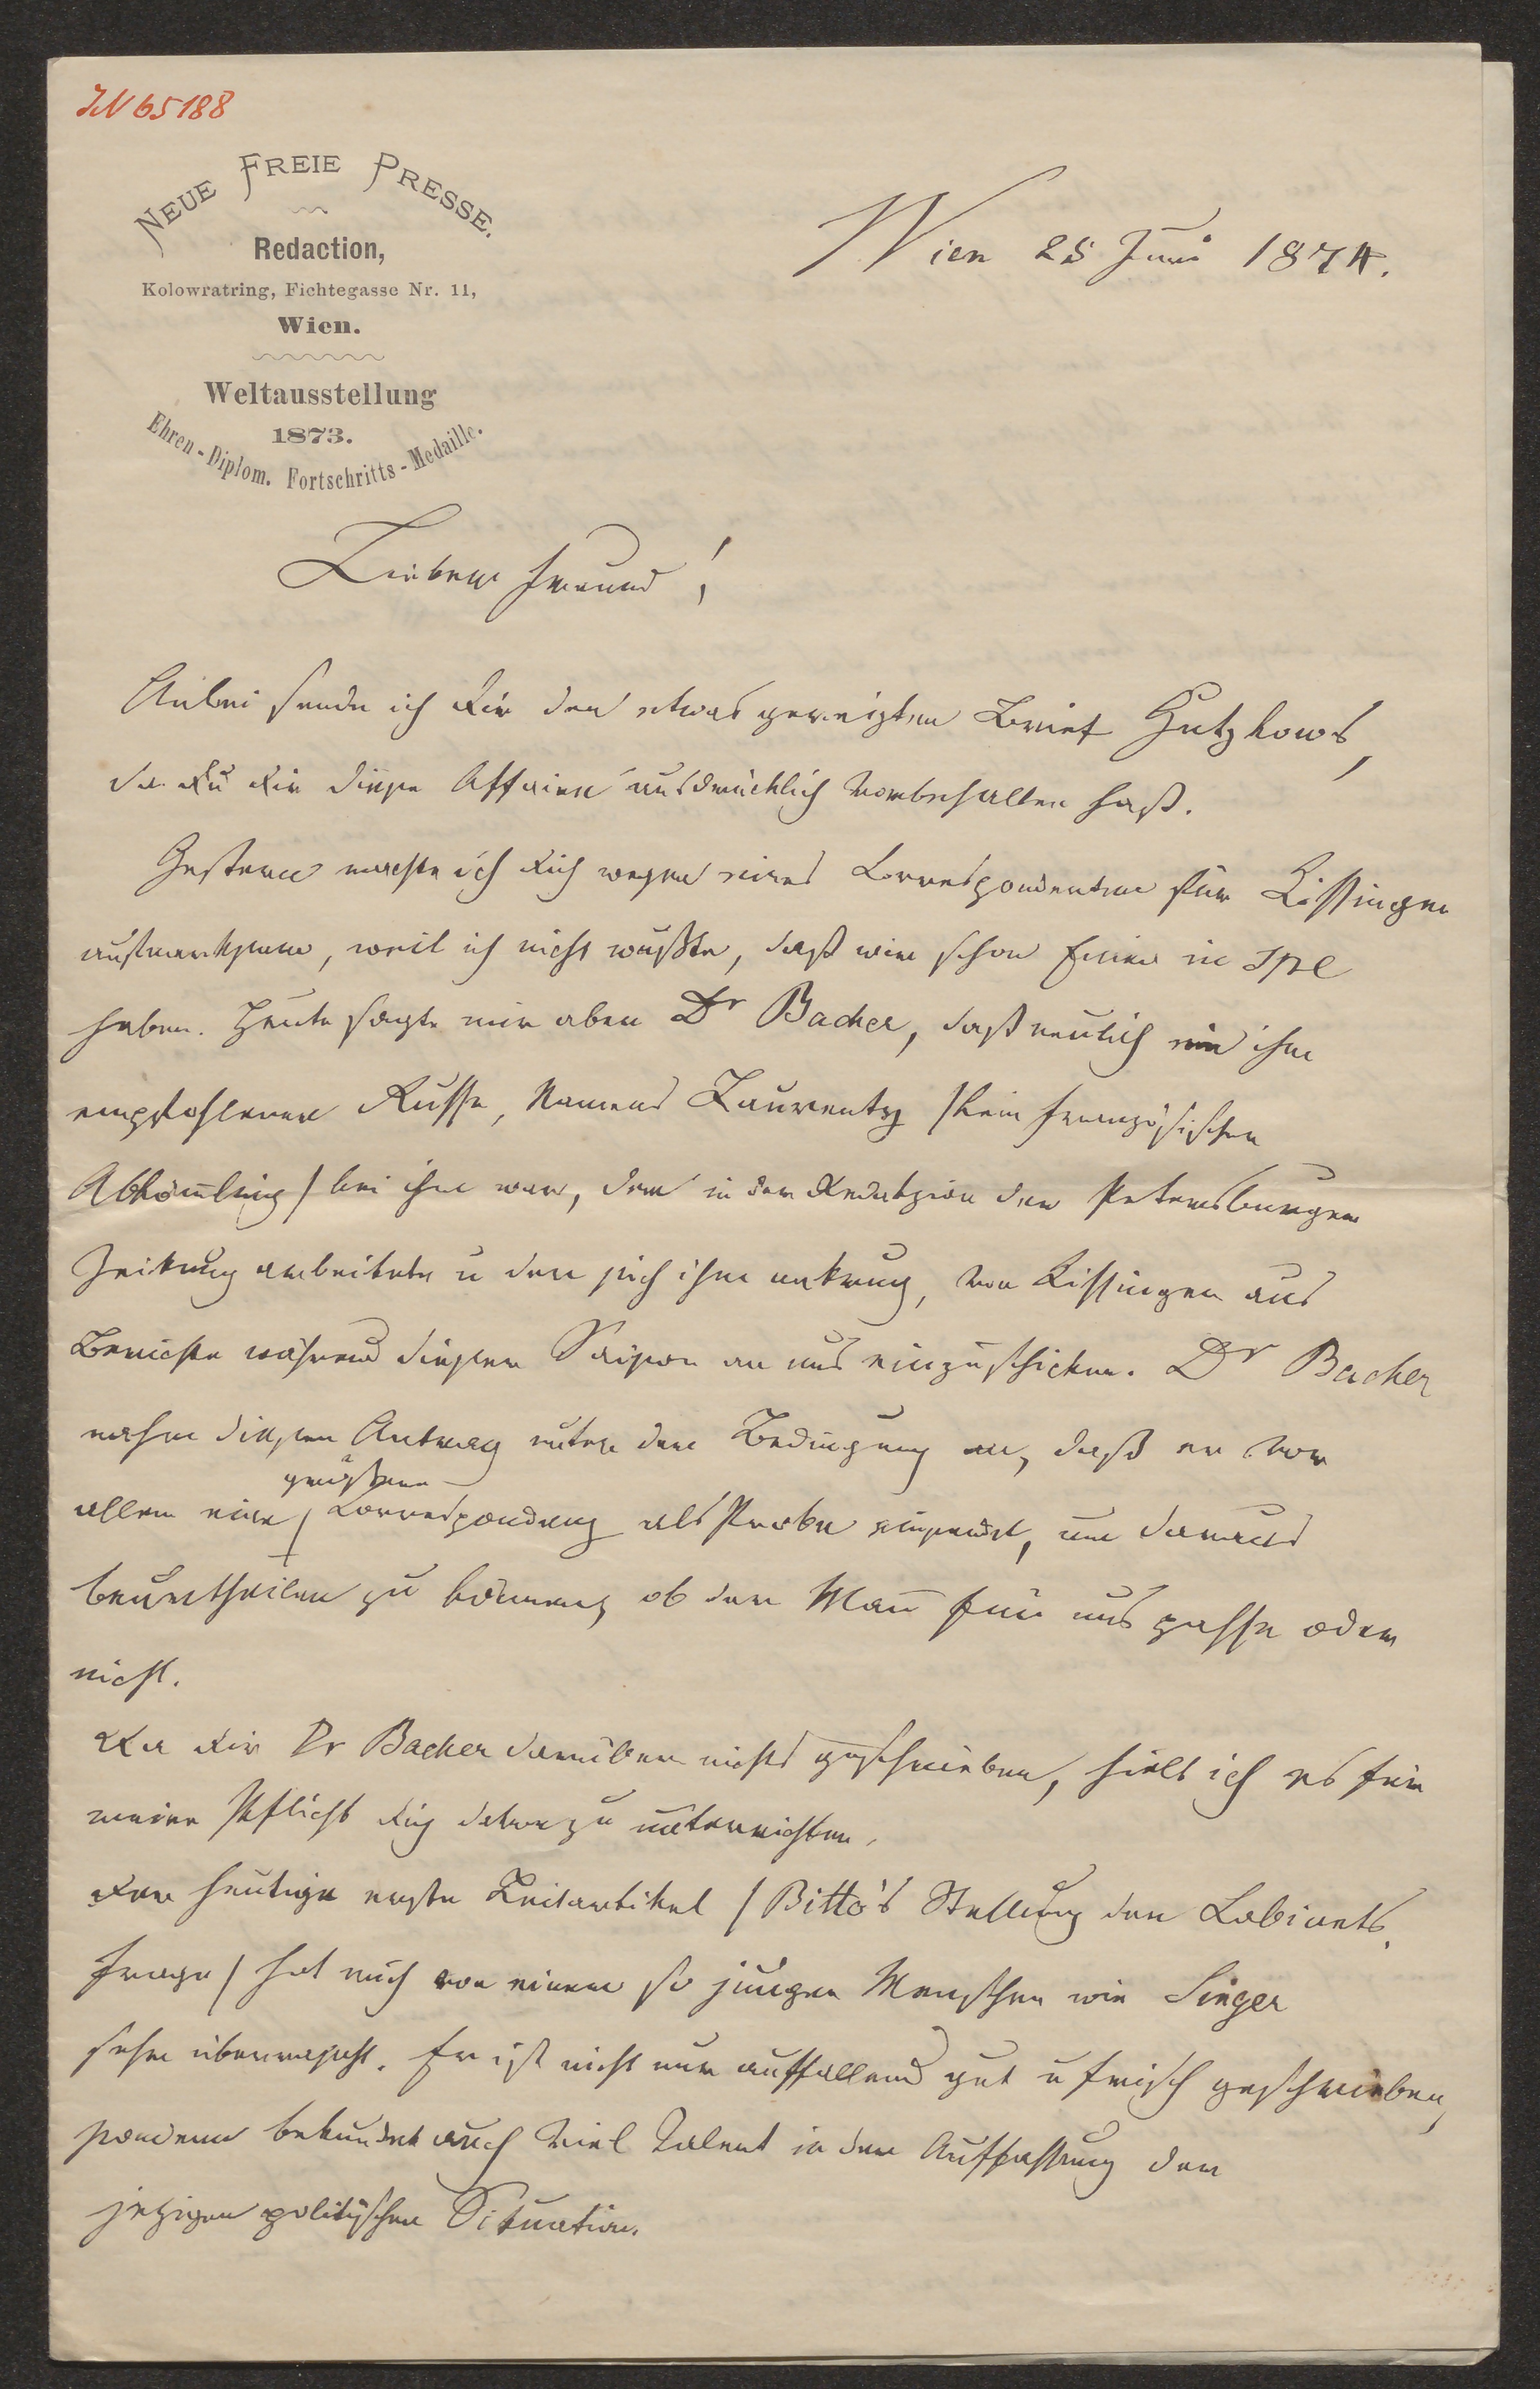 IN 65188
NEUE FREIE PRESSE.
Redaction,
Kolowratring, Fichtegasse Nr. 11,
Wien.
Weltausstellung
1873.
Ehren-Diplom. Fortschritts-Medaille.
Wien 25 Juni 1874.
Lieber Freund!
Anbei sende ich Dir den etwas gereizten Brief Gutzkows,
da Du Dir diese Affaire ausdrücklich vorbehalten hast.
Gestern machte ich Dich wegen eines Correspondenten für Kissingen
aufmerksam, weil ich nicht wußte, daß wir schon Einen in spe
haben. Heute sagte mir aber Dr Bacher, daß neulich ein ihm
empfohlener Russe, Namens Laurentz /kein französischer
Abkömling/ bei ihm war, der in der Redakzion der Petersburger
Zeitung arbeitete u der sich ihm antrug, von Kissingen aus
Berichte während dieser Saison an uns einzuschicken. Dr Bacher
nahm diesen Antrag unter der Bedingung an, daß er vor
allem eine / größere Correspondenz als Probe einsendet, um daraus
beurtheilen zu können, ob der Mañ für uns passe oder
nicht.
Da Dir Dr Bacher darüber nichts geschrieben, hielt ich es für
meine Pflicht Dich davon zu unterrichten.
Der heutige erste Leitartikel / Bitto's Stellung der Cabinets-
frage / hat mich von einem so jungen Menschen wie Singer
sehr überrascht. Er ist nicht nur auffallend gut u frisch geschrieben,
sondern bekundet auch viel Talent in der Auffassung der
jetzigen politischen Situation.